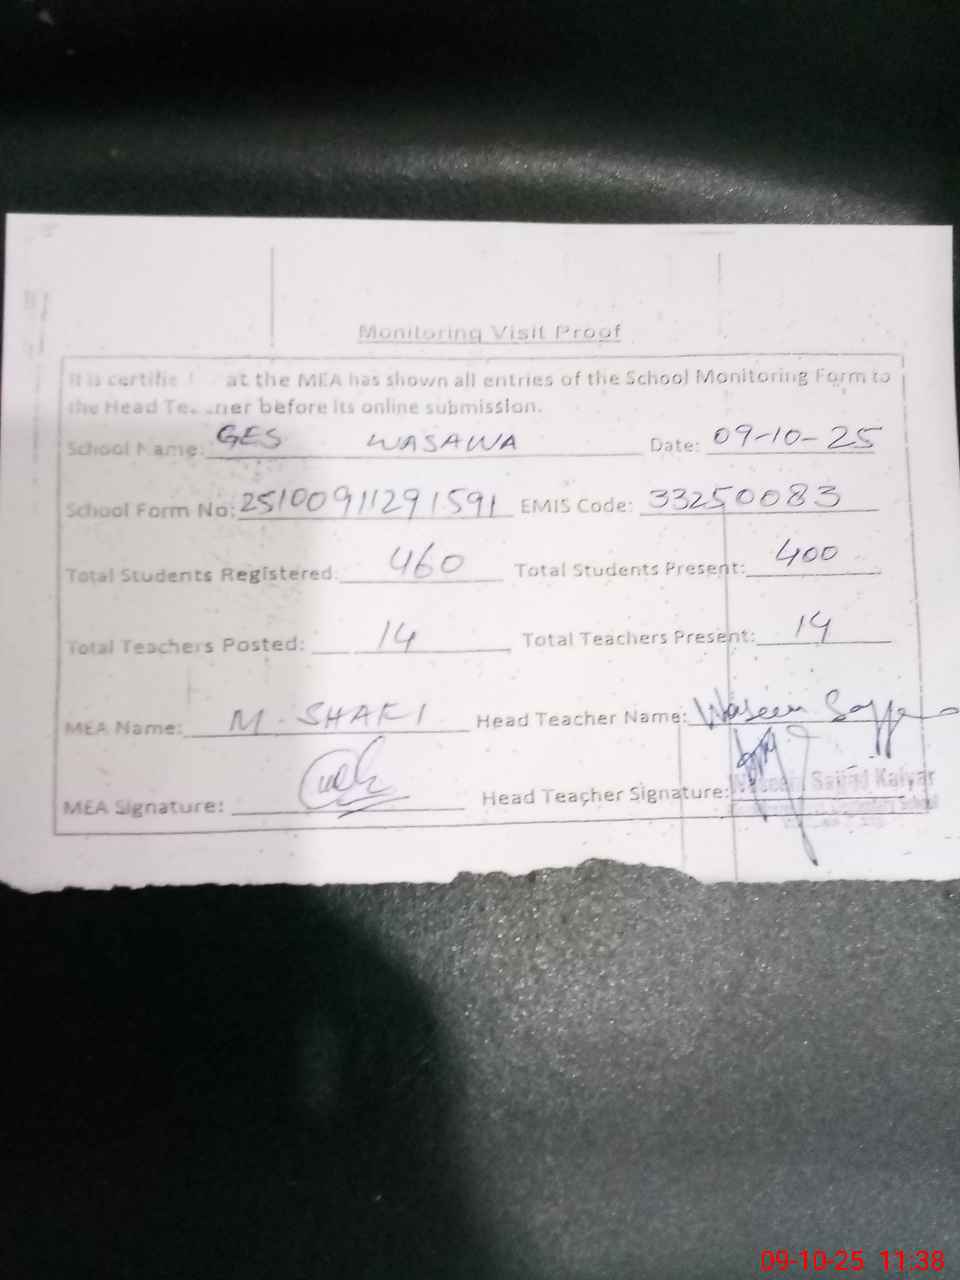 Monitoring Visit Proof
It is certifie at the MEA has shown all entries of the School Monitoring Form to
the Head before its online submission.
School Name: GES WASAWA Date: 09-10-25
School Form No: 25100911291591 EMIS Code: 33250083
Total Students Registered: 460 Total Students Present: 400
Total Teachers Posted: 14 Total Teachers Present: 14
MEA Name: M. SHAFI Head Teacher Name: Waseem
MEA Signature: Head Teacher Signature:
Waseem Sajjad Kalyar
Elementary School
09-10-25 11:38